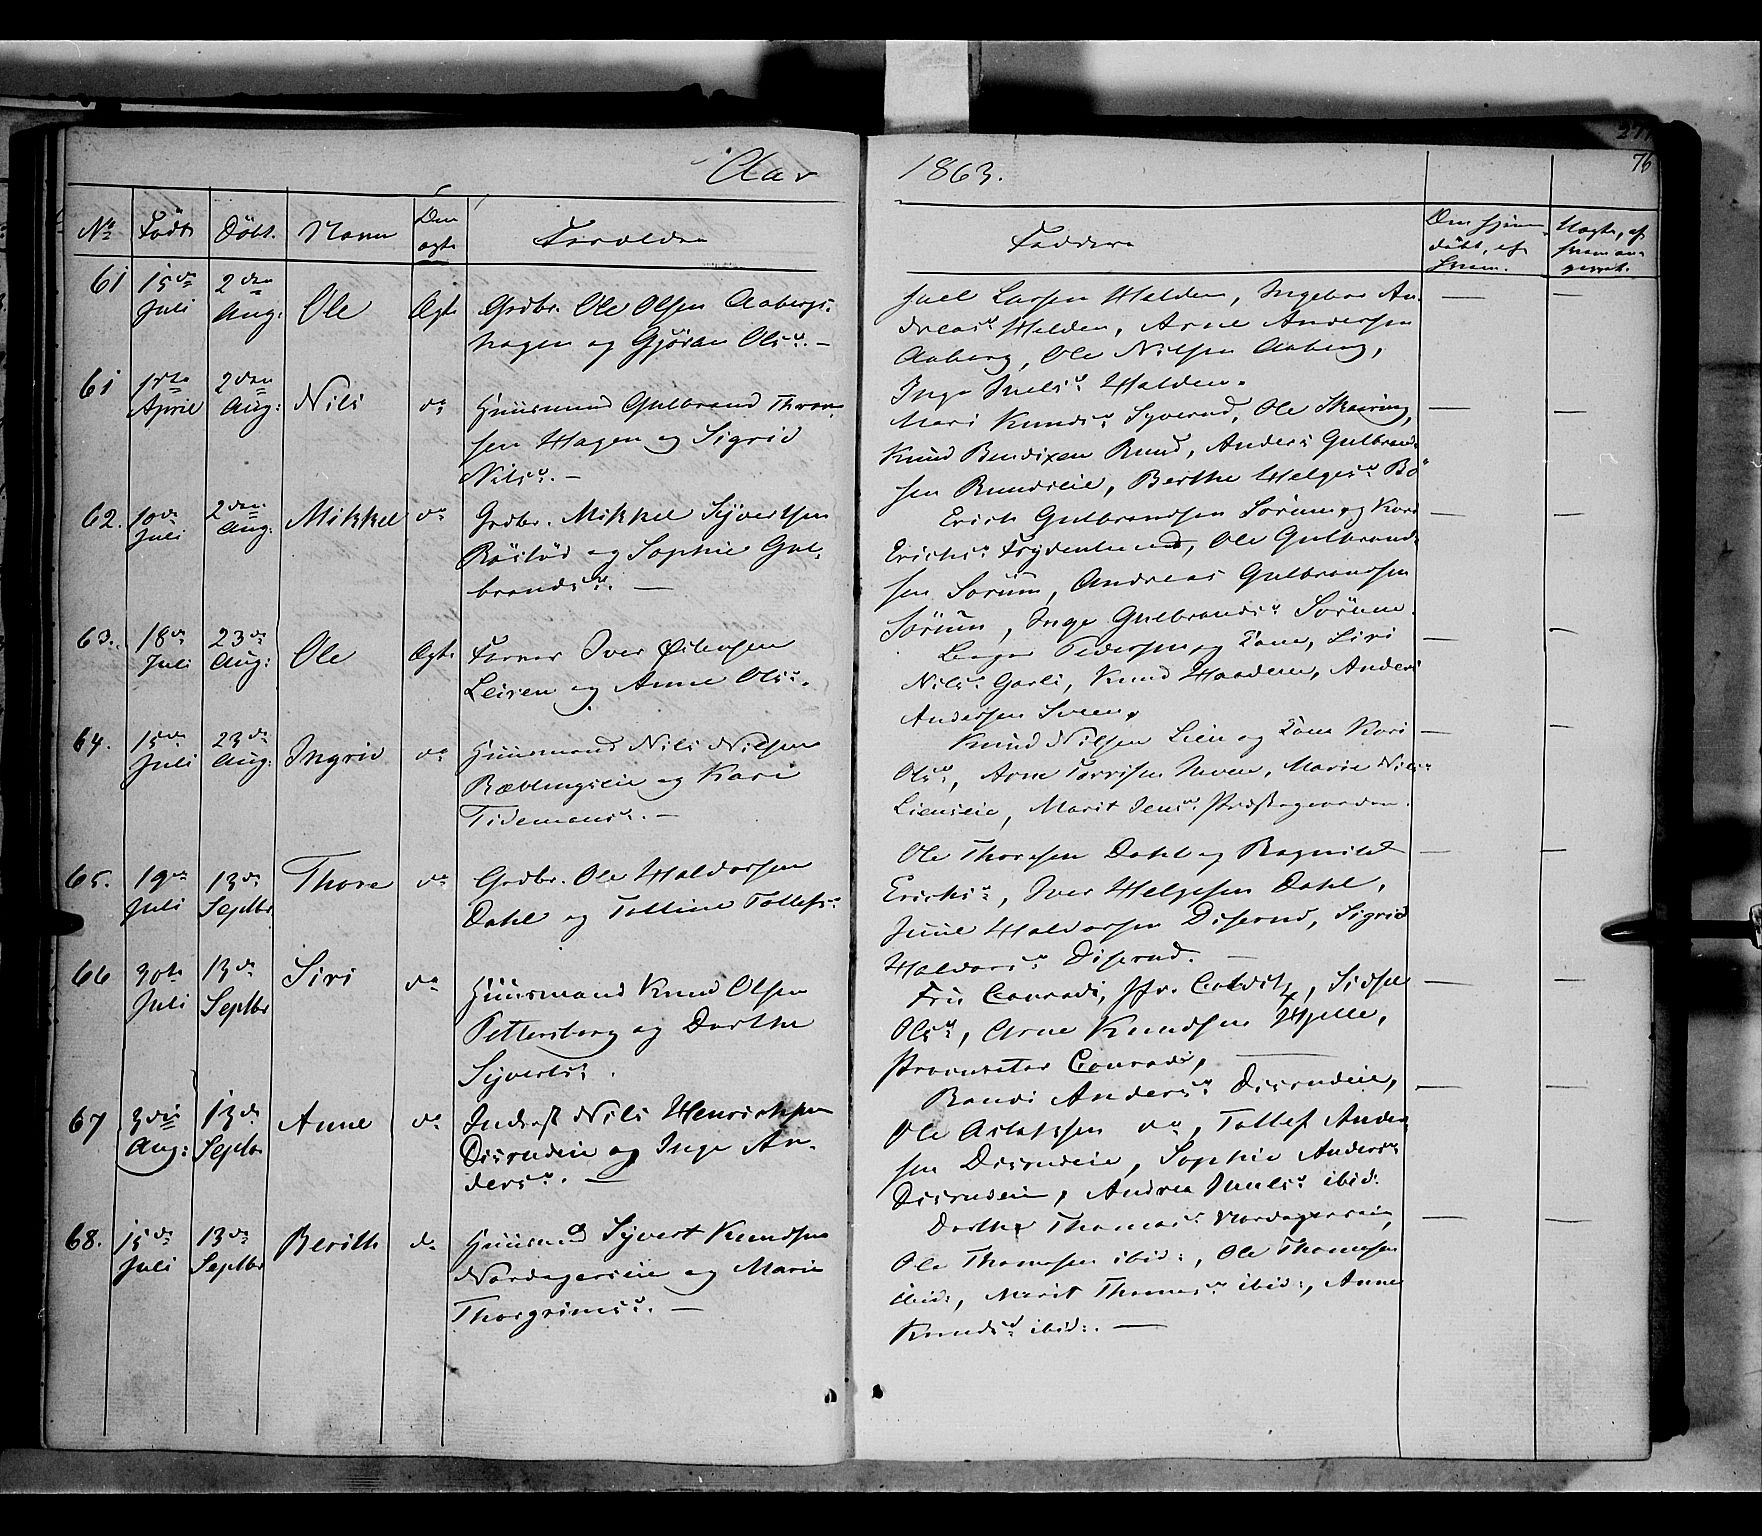 Aar
1863.
76
No Født Døbt. Navn Den ægte Forældre
Faddere Den hjemmedøbt, af hvem. Uægte, af hvem angivet.
61 15de Juli 2den Aug: Ole Ægte Grdbr. Ole Olsen Aabergs-
hagen og Gjøran Olsd. —
Juel Larsen Halden, Ingebor An-
dreasd Halden, Arne Andersen
Aaberg, Ole Nilsen Aaberg,
Inge Juelsd Halden.
61 1ste April 2den Aug: Nils do Huusmand Gulbrand Thron-
sen Hagen og Sigrid
Nilsd. —
Mari Knudsd Syverud, Ole Skaring,
Knud Bendixen Ruud, Anders Gulbrand-
sen Ruudseie, Berthe Helgesd Bø
62. 10de Juli 2den Aug: Mikkel do Grdbr. Mikkel Syvertsen
og Sophie Gul-
brandsd. —
Erick Gulbrandsen Sørum og Kari
Ericksd Frydenlund, Ole Gulbrand-
sen Sørum, Andreas Gulbrandsen
Sørum, Inge Gulbrandsd Sørum.
63. 18de Juli 23de Aug: Ole Ægte Iver Østensen
Leiren og Anne Olsd.
Pedersen og Kone, Siri
Nilsd Garli, Knud Haadem, Anders
Andersen Sveen,
64. 15de Juli 23de Aug: Ingrid do Huusmand Nils Nilsen
Ræblingseie og Kari
Tidemansd. —
Knud Nilsen Lien og Kone Kari
Olsd, Arne Torrisen Moen, Marie Nilsd
Lienseie, Marit Jensd Præstegaarden.
65. 19de Juli 13de Septbr Thore do Grdbr. Ole Haldorsen
Dahl og Tolline Tollefsd
Ole Thoresen Dahl og Ragnild
Ericksd, Iver Helgesen Dahl,
Juul Haldorsen Diserud, Sigrid
Haldorsd Diserud. —
66 30te Juli 13de Septbr Siri do Huusmand Knud Olsen
Pettersberg og Dorthe
Syvertsd.
Fru Conradi, Jfr. Coldit, Sidsel
Olsd, Arne Knudsen Hjelle,
Procurator Conradi, —
67 3die Aug: 13de Septbr Anne do Inderst Nils Henricksen
Disrudeie og Inge An-
dersd. —
Randi Andersd Disrudeie,
Ole Aslaksen do, Tollef Ander
sen Disrudeie, Sophie Andersd
Disrudeie, Andrea Juulsd ibid.
68. 15de Juli 13de Septbr Berith do Huusmd Syvert Knudsen
Nordagerseie og Marie
Thorgrimsd. —
Dorthe Thomasd Nordagerseie,
Ole Thomesen ibid:, Ole Thomesen
ibid:, Marit Thomesd ibid:, Anne
Knudsd ibid:. —